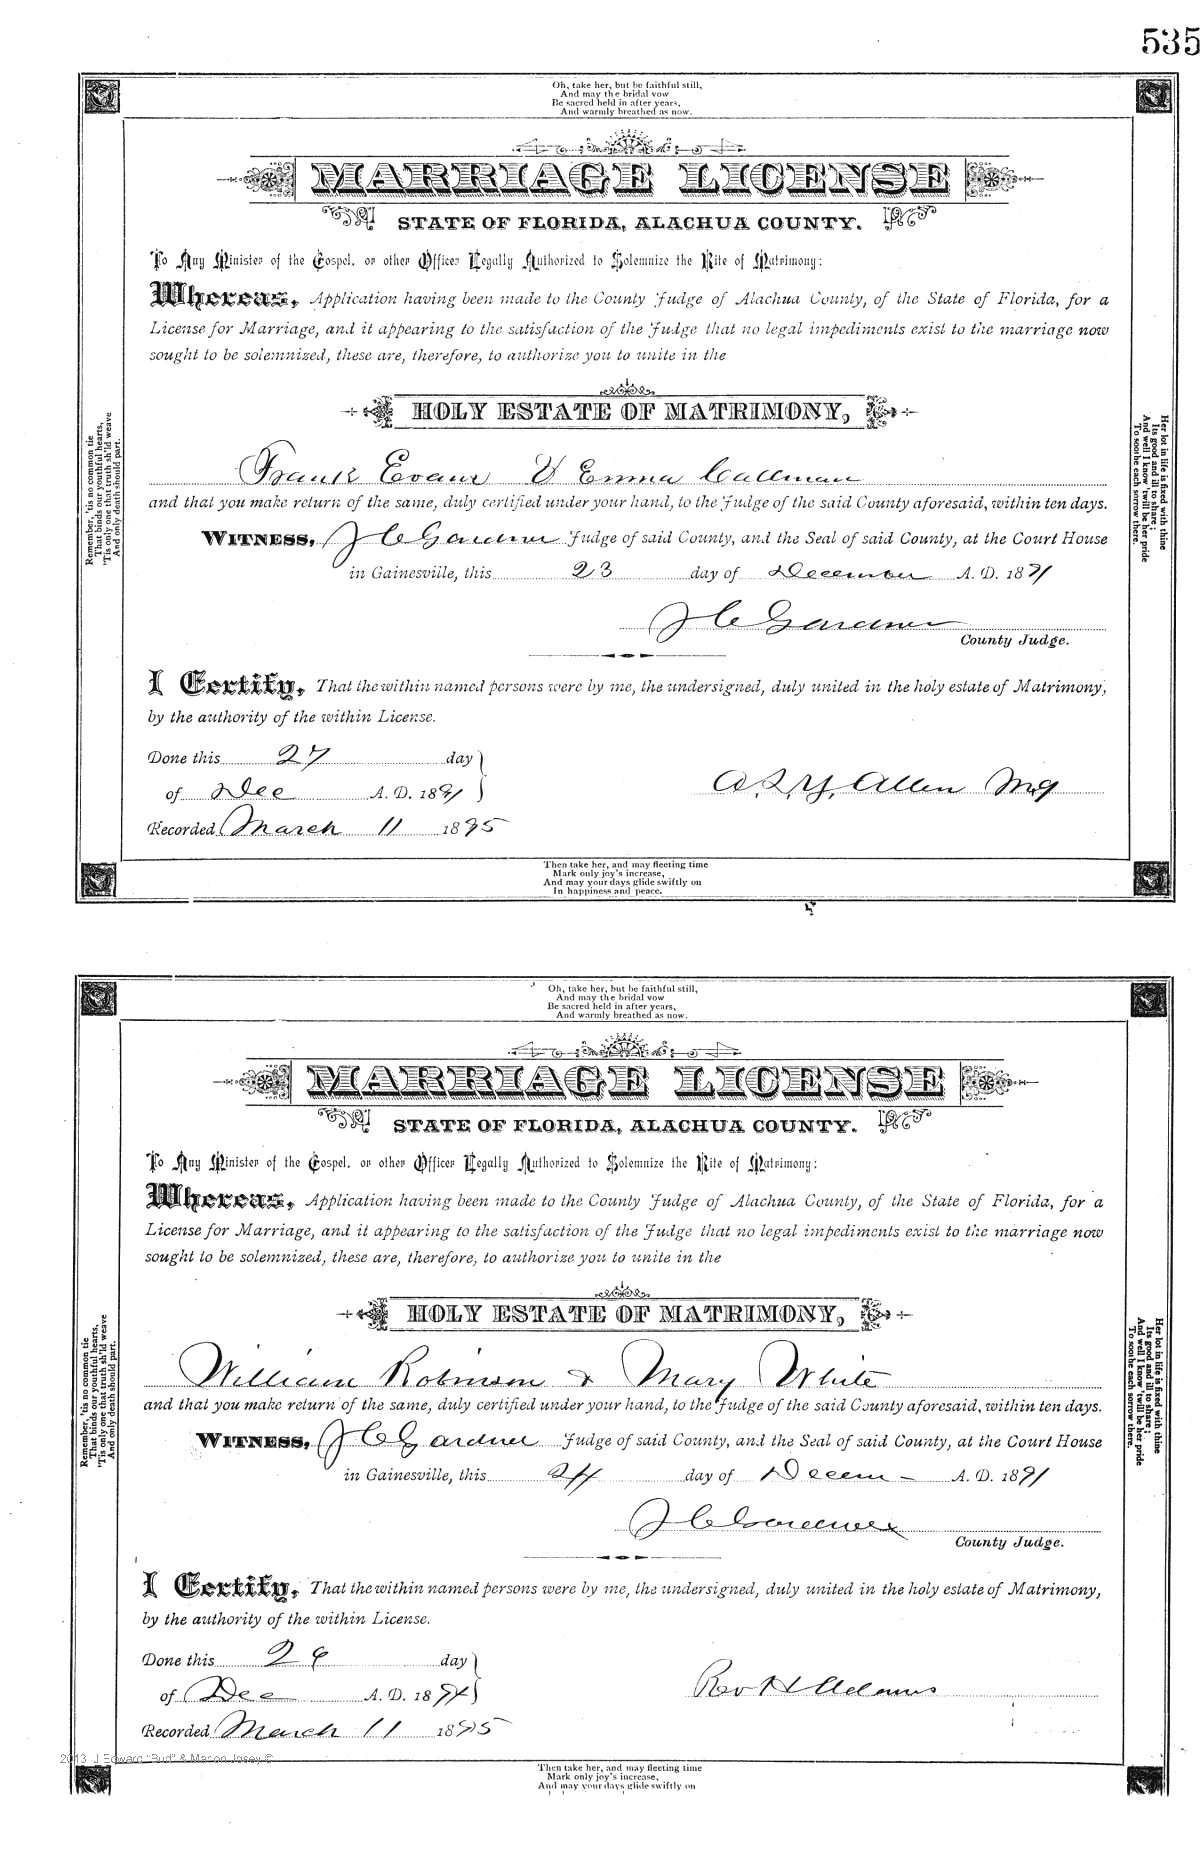 535
Oh, take her, but be faithful still,
And may the bridal vow
Be sacred held in after years,
And warmly breathed as now.
MARRIAGE LICENSE
STATE OF FLORIDA, ALACHUA COUNTY.
To Any Minister of the Gospel, or other Officer Legally Authorized to Solemnize the Rite of Matrimony:
Whereas, Application having been made to the County Judge of Alachua County, of the State of Florida, for a
License for Marriage, and it appearing to the satisfaction of the Judge that no legal impediments exist to the marriage now
sought to be solemnized, these are, therefore, to authorize you to unite in the
HOLY ESTATE OF MATRIMONY,
Frank Evans & Emma
and that you make return of the same, duly certified under your hand, to the Judge of the said County aforesaid, within ten days.
WITNESS, J C Gardner Judge of said County, and the Seal of said County, at the Court House
in Gainesville, this 23 day of December A. D. 1891
J C Gardner
County Judge.
I Certify, That the within named persons were by me, the undersigned, duly united in the holy estate of Matrimony,
by the authority of the within License.
Done this 27 day
of Dec A. D. 1891
A. S. Y. Allen
Recorded March 11 1895
Remember, 'tis no common tie
That binds our youthful hearts,
'Tis only one that truth sh'ld weave
And only death should part.
Her lot in life is fixed with thine
Its good and ill to share;
And well I know 'twill be her pride
To soothe each sorrow there.
Then take her, and may fleeting time
Mark only joy's increase,
And may your days glide swiftly on
In happiness and peace.
Oh, take her, but be faithful still,
And may the bridal vow
Be sacred held in after years,
And warmly breathed as now.
MARRIAGE LICENSE
STATE OF FLORIDA, ALACHUA COUNTY.
To Any Minister of the Gospel, or other Officer Legally Authorized to Solemnize the Rite of Matrimony:
Whereas, Application having been made to the County Judge of Alachua County, of the State of Florida, for a
License for Marriage, and it appearing to the satisfaction of the Judge that no legal impediments exist to the marriage now
sought to be solemnized, these are, therefore, to authorize you to unite in the
HOLY ESTATE OF MATRIMONY,
William Robinson & Mary White
and that you make return of the same, duly certified under your hand, to the Judge of the said County aforesaid, within ten days.
WITNESS, J C Gardner Judge of said County, and the Seal of said County, at the Court House
in Gainesville, this 24 day of Decem - A. D. 1891
J C Gardner
County Judge.
I Certify, That the within named persons were by me, the undersigned, duly united in the holy estate of Matrimony,
by the authority of the within License.
Done this day
of Dec A. D. 18
Rev H Adams
Recorded March 11 1895
Remember, 'tis no common tie
That binds our youthful hearts,
'Tis only one that truth sh'ld weave
And only death should part.
Her lot in life is fixed with thine
Its good and ill to share;
And well I know 'twill be her pride
To soothe each sorrow there.
2013 J Edward "Bud" & Macon Josey ©
Then take her, and may fleeting time
Mark only joy's increase,
And may your days glide swiftly on